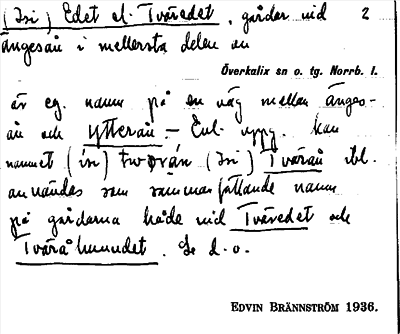 (ɔri) Edet el. Tväredet, gårdar vid 2
Ängesån i mellersta delen av
Överkalix sn o. tg. Norrb. l.
är eg. namn på en väg mellan Änges-
ån och Ytterån. – Enl. uppg. kan
namnet (in) (ɔri) Tvärån ibl.
användas som sammanfattande namn
på gårdarna både vid Tväredet och
Tväråhuvudet. Se d. o.
EDVIN BRÄNNSTRÖM 1936.